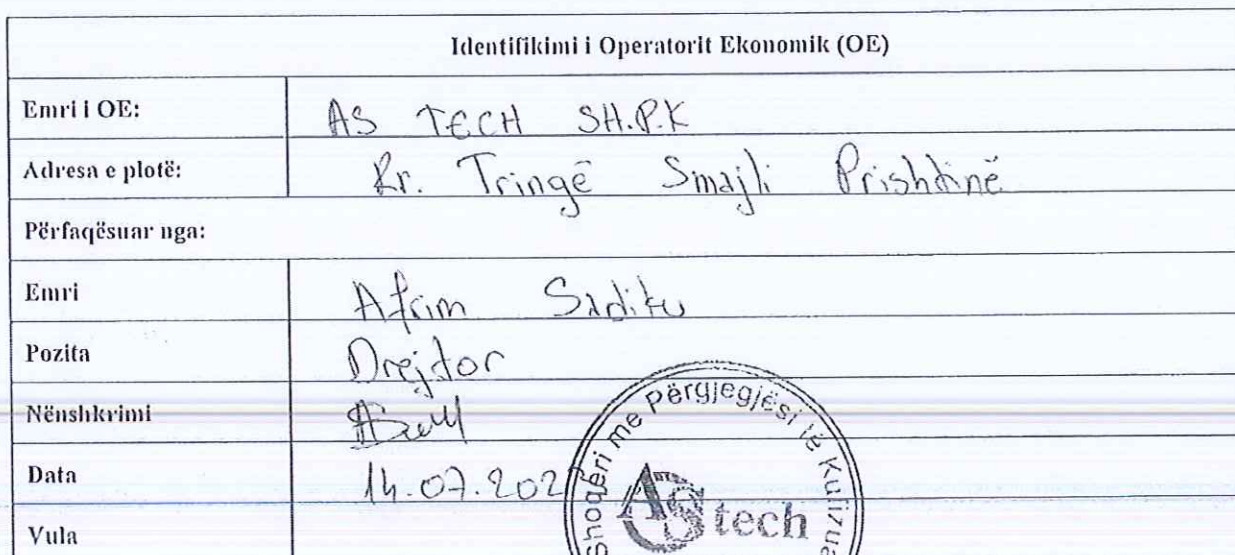 Identifikimi i Operatorit Ekonomik (OE)
Emri i OE: AS TECH SH.P.K
Adresa e plotë: Rr. Tringë Smajli Prishtinë
Përfaqësuar nga:
Emri Afrim Sadiku
Pozita Drejtor
Nënshkrimi
Data 14.07.202
Vula
Shoqëri me Përgjegjësi të Kufizua
AS tech